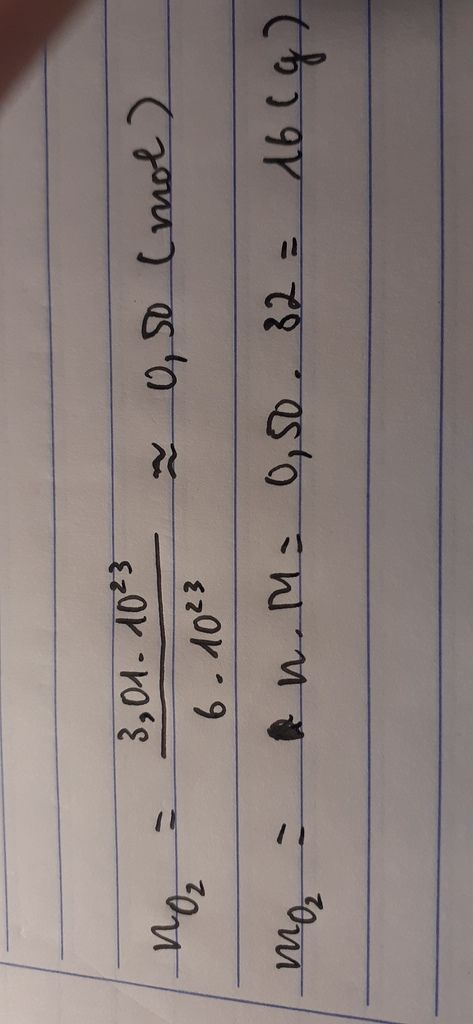 n_{O_2} = \frac{3,01 \cdot 10^{23}}{6 \cdot 10^{23}} ≈ 0,50 (mol)
m_{O_2} = n . M = 0,50 . 32 = 16 (g)